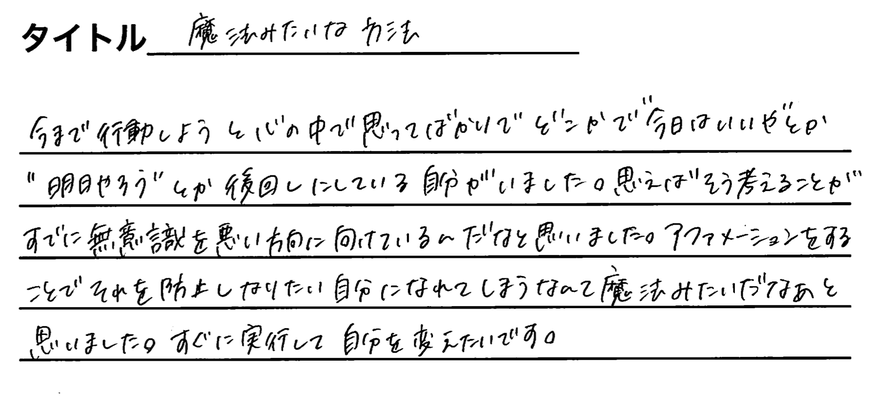 タイトル 魔法みたいな方法
今まで行動しようと心の中で思ってばかりでどこかで"今日はいいや"とか
"明日やろう"とか後回しにしている自分がいました。思えばそう考えることが
すでに無意識を悪い方向に向けているんだなと思いました。アファメーションをする
ことでそれを防止しなりたい自分になれてしまうなんて魔法みたいだなあと
思いました。すぐに実行して自分を変えたいです。